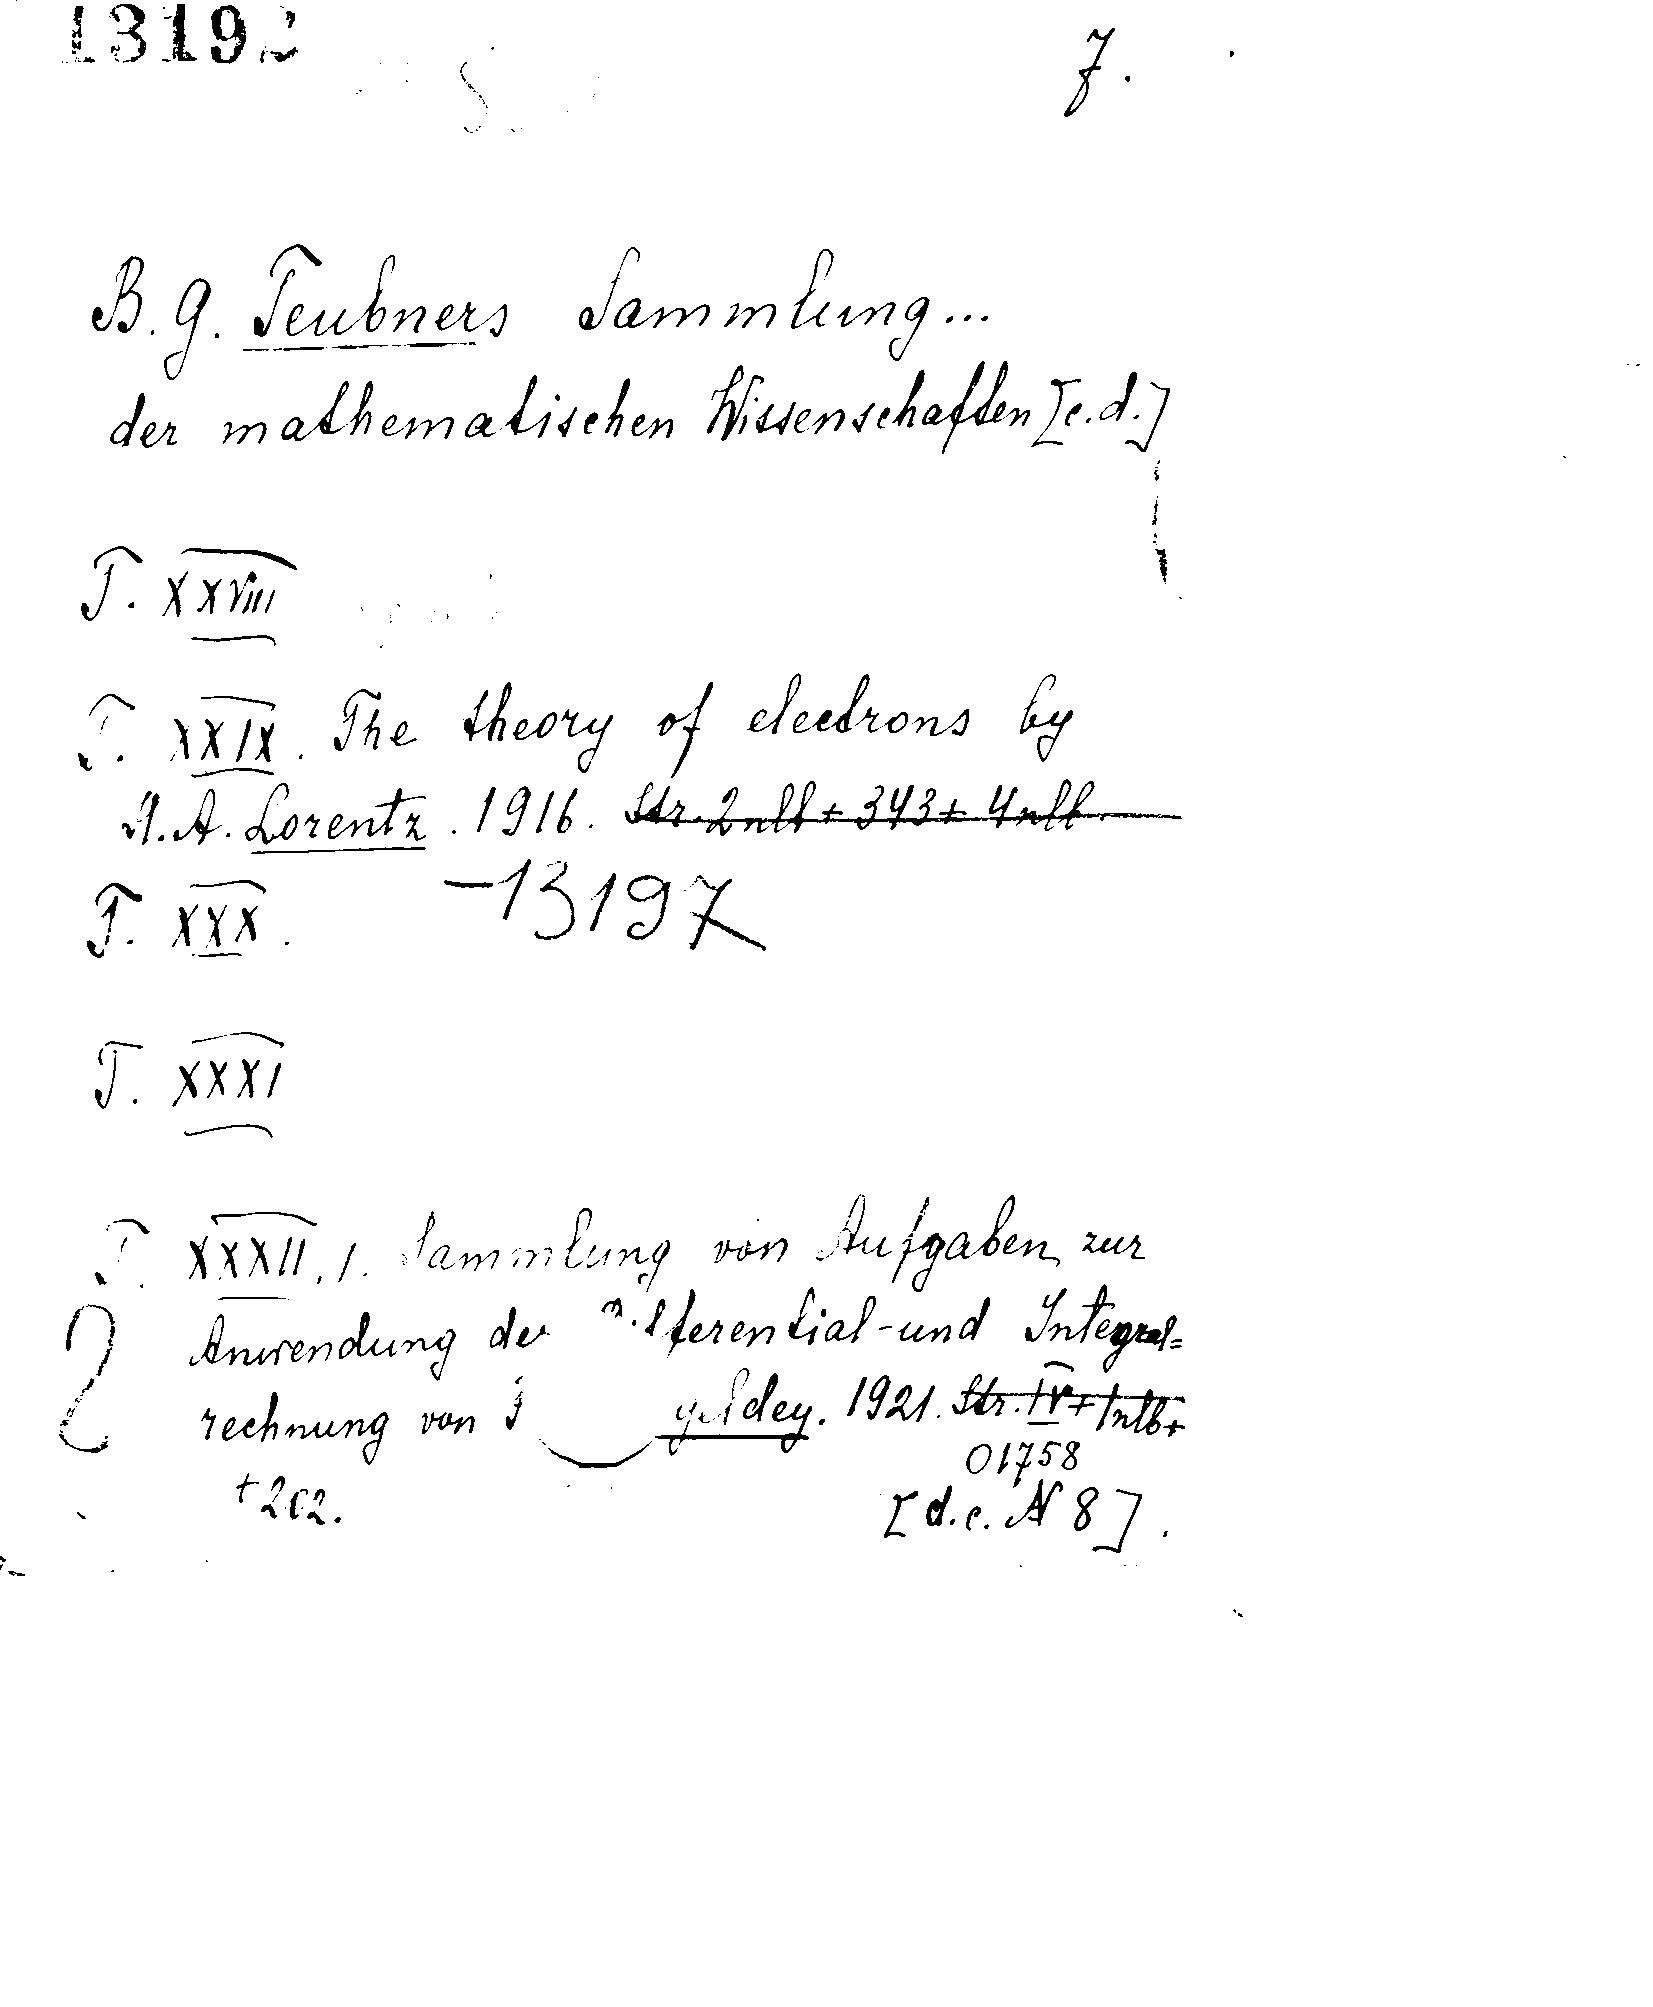 13192
7.
B. G. Teubners Sammlung...
der mathematischen Wissenschaften [c.d.]
T. XXVIII
T. XXIX. The theory of electrons by
H. A. Lorentz. 1916. Str. 2nlb + 343 + 4nlb.
T. XXX. -13197
T. XXXI
T. XXXII, 1. Sammlung von Aufgaben zur
Anwendung der Differential- und Integral=
rechnung von geldey. 1921. Str. IV + 1nlb+
01758
+ 202. [d.c. N 8].